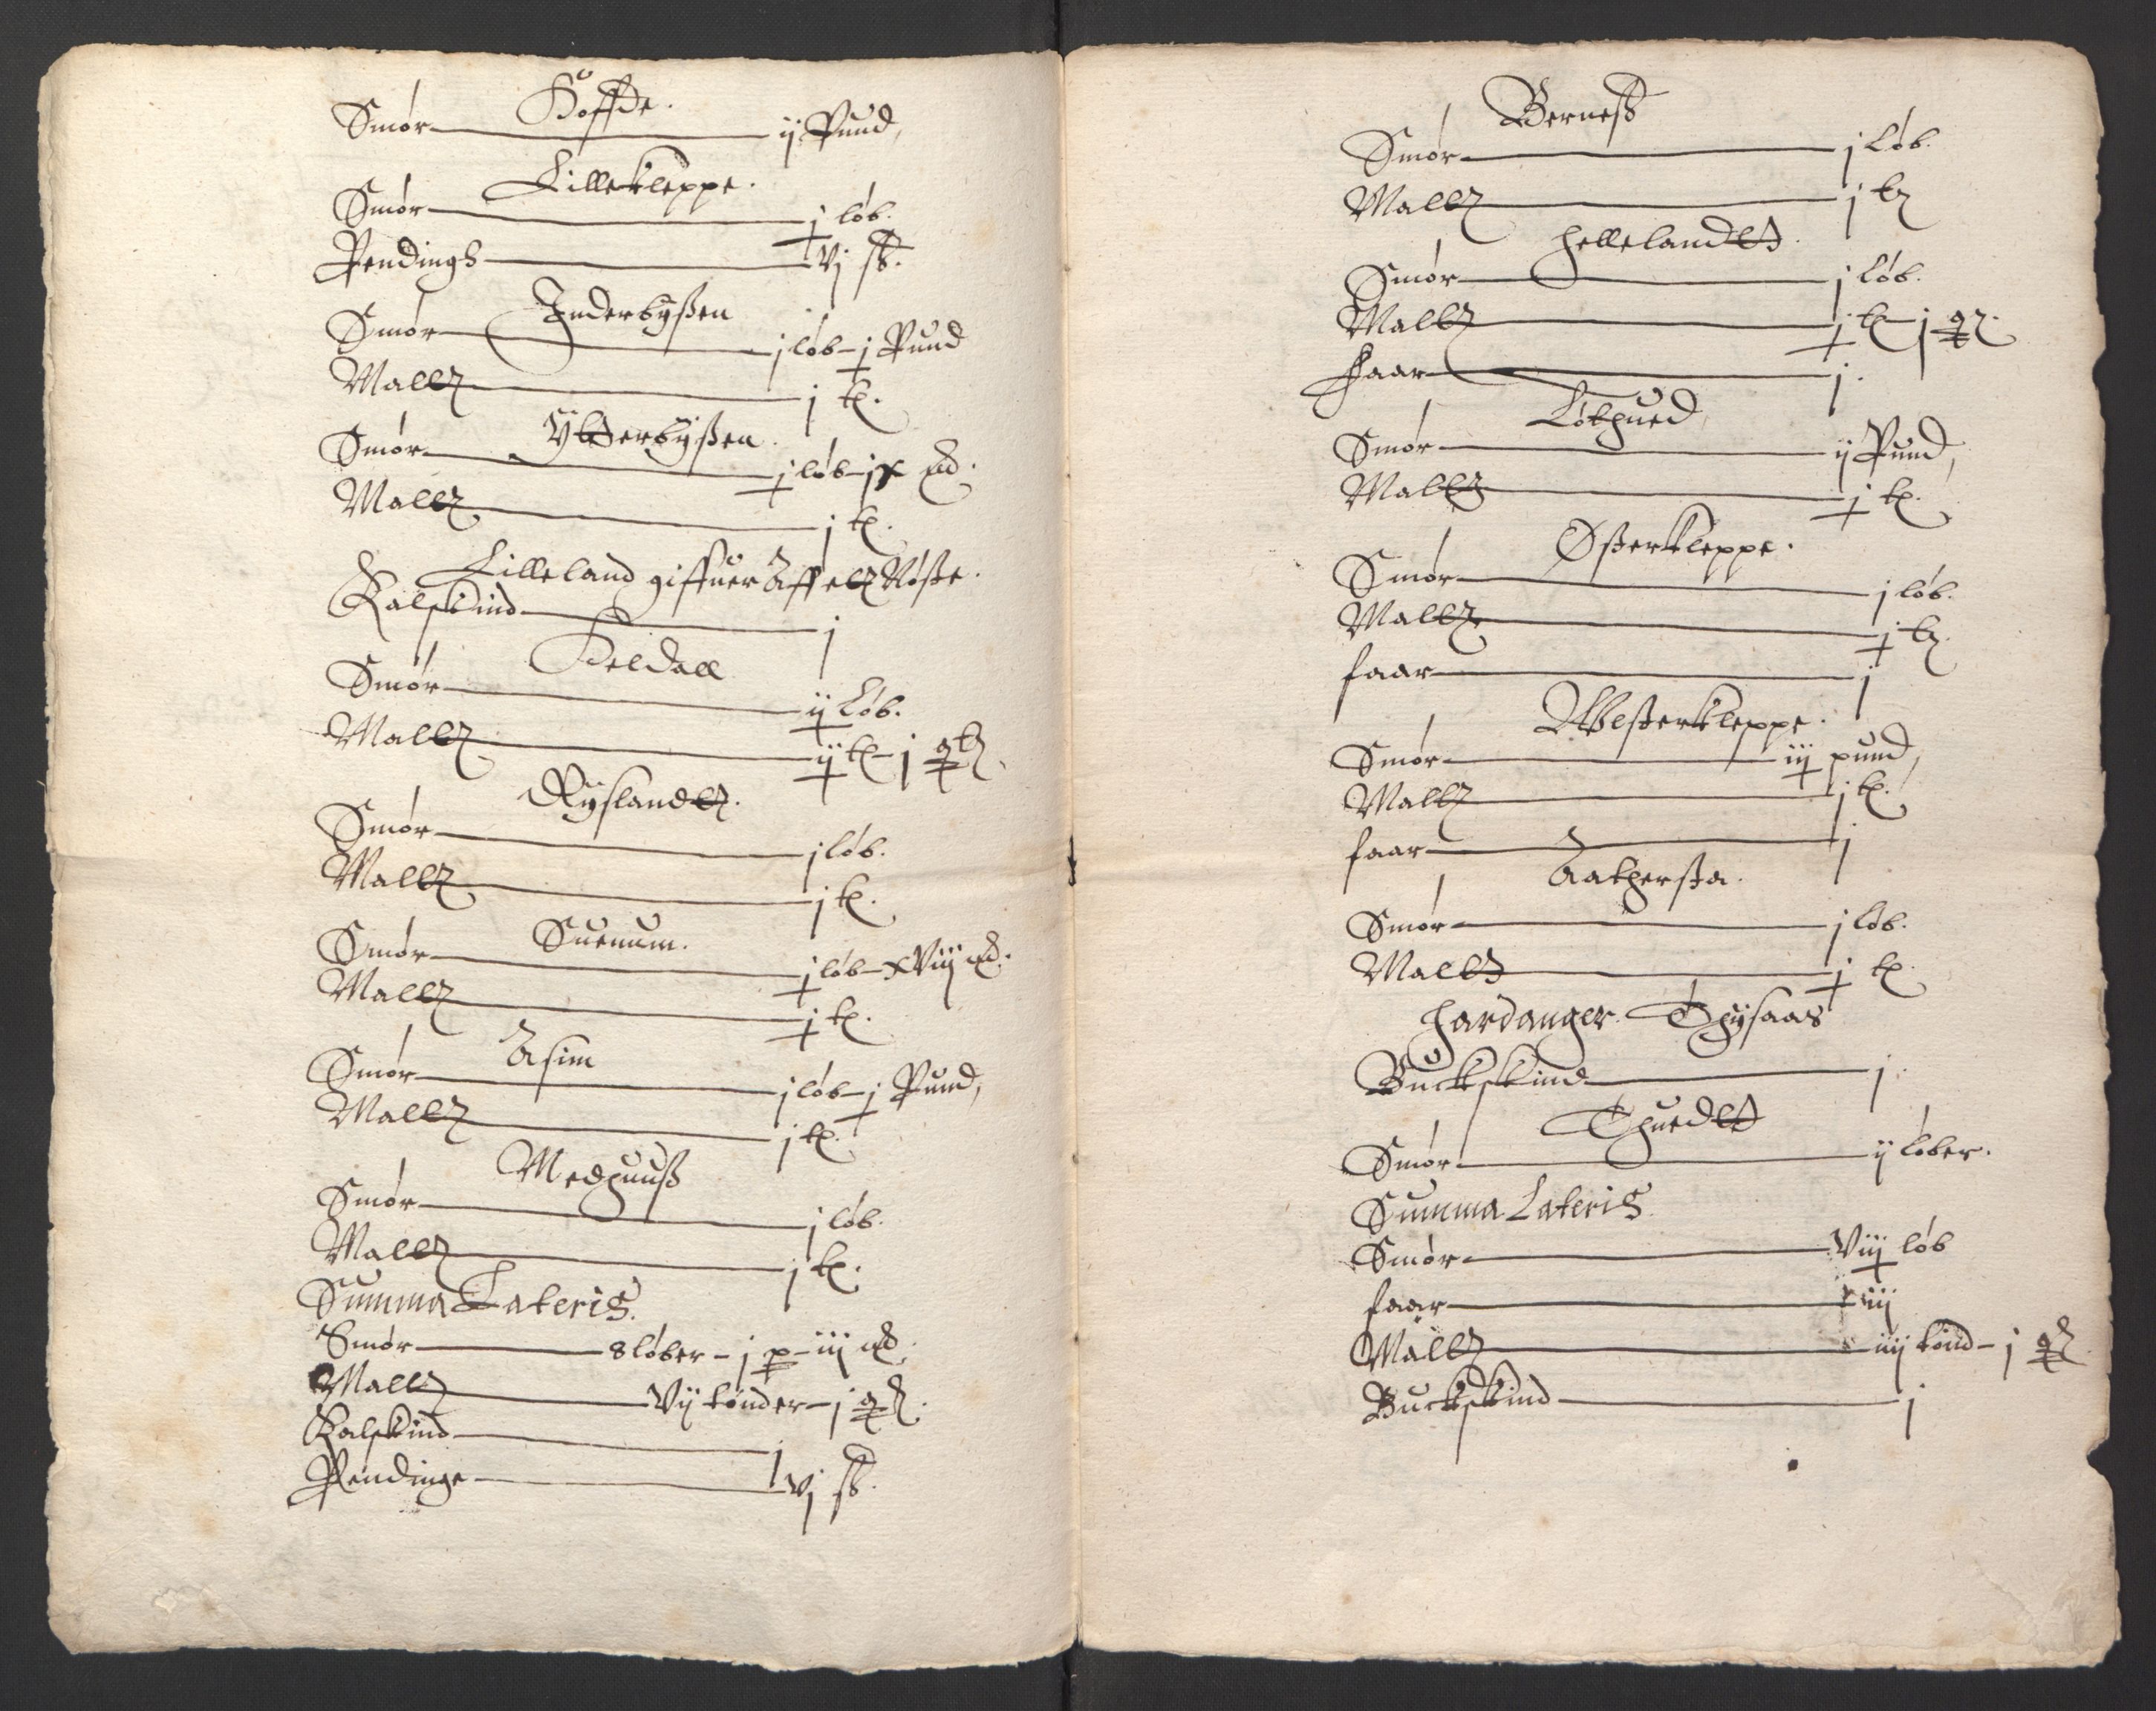 Hoffde.
Smør ij Pund,
Lillekleppe.
Smør j løb.
Pendings vj sk.
Inderbyßen
Smør j løb j Pund
Maltt j tt.
Ytterbyßen.
Smør j løb ix md.
Maltt j tt.
Lilleland giffuer Aff ett Nøste.
Kalfskind j
Heldall
Smør ij Løb.
Maltt ij tt j qt.
Ryslandtt.
Smør j løb.
Maltt j tt.
Suenum.
Smør j løb xviij md.
Maltt j tt.
Asim
Smør j løb j Pund,
Maltt j tt.
Medhuuß
Smør j løb.
Maltt j tt.
Summa Lateris.
Smør 8 løber j p iij md.
Maltt vij tønder j qt.
Kalfskind j
Pendinge vj sk.
Berneß
Smør j Løb.
Maltt j tt
Hellelandtt.
Smør j Løb.
Maltt j tt j qt.
Faar j.
Løthued
Smør ij Pund,
Maltt j tt.
Østerkleppe.
Smør j løb.
Maltt j tt.
faar j
Westerkleppe.
Smør iij pund,
Maltt j tt.
faar j
Aathersta.
Smør j løb.
Maltt j tt.
Hardanger. Thysaas
Buckskind j.
Thuedtt
Smør ij løber.
Summa Lateris.
Smør viij løb
faar iij
Maltt iiij tønd j qt.
Buckskind j